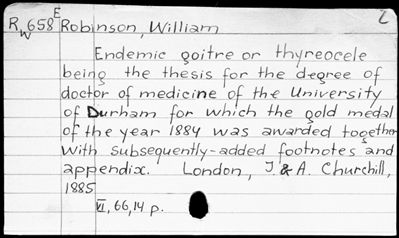 E L
RW658 Robinson, William
Endemic goitre or thyreocele
being the thesis for the degree of
doctor of medicine of the University
of Durham for which the gold medal
of the year 1884 was awarded together
with subsequently-added footnotes and
appendix. London, J. & A. Churchill,
1885
VI, 66, 14 p.